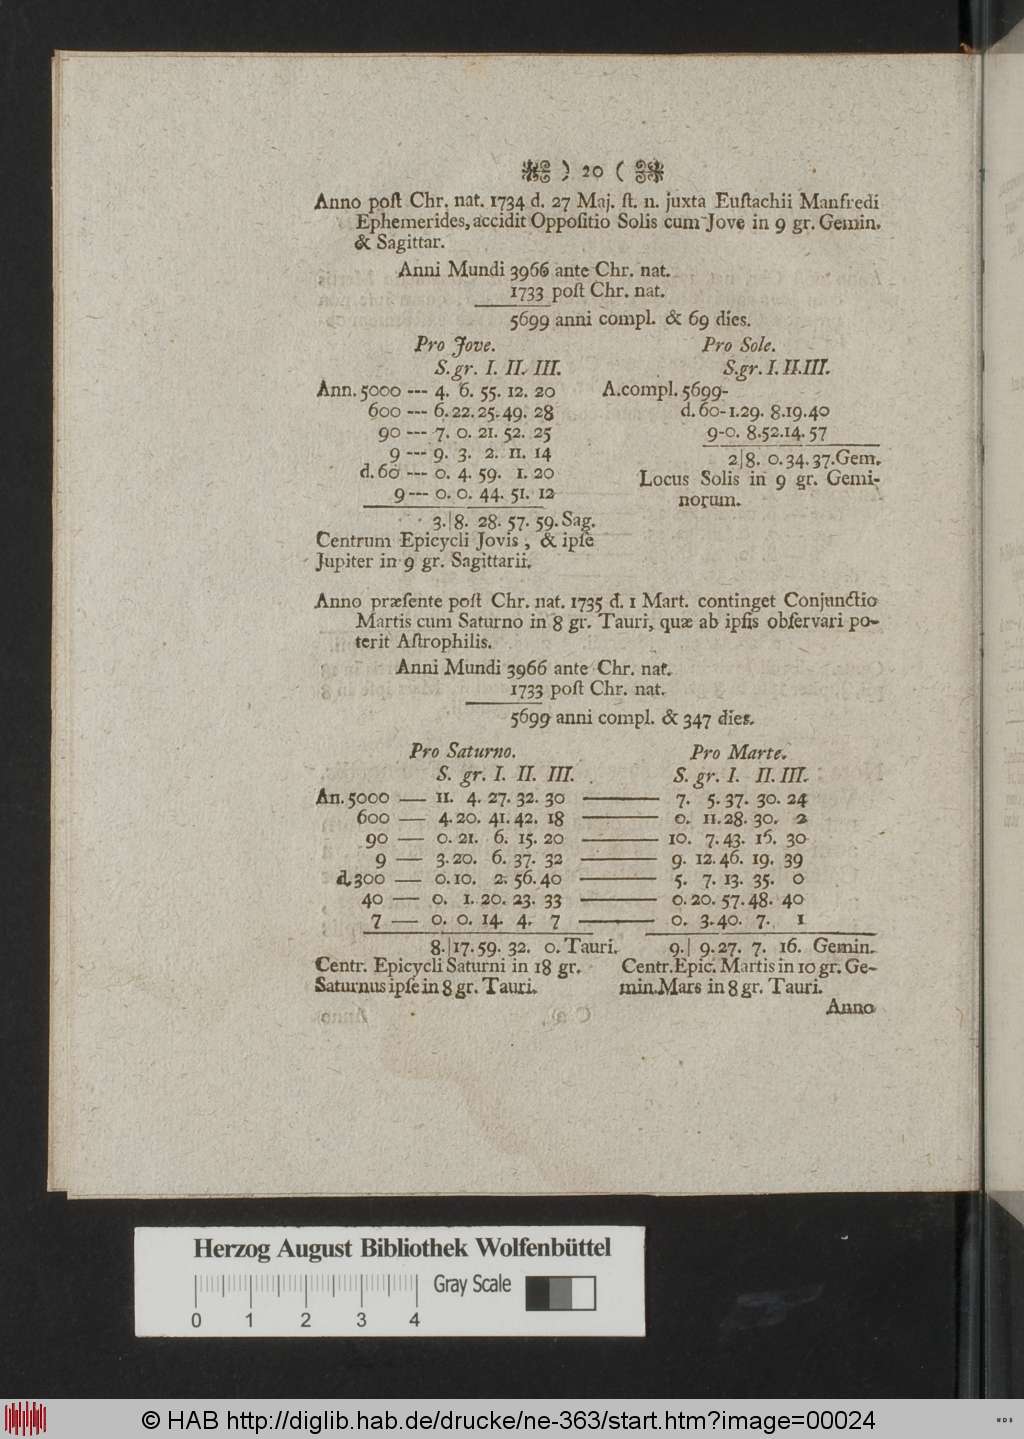 ) 20 (
Anno poſt Chr. nat. 1734 d. 27 Maj. ſt. n. juxta Euſtachii Manfredi
Ephemerides, accidit Oppoſitio Solis cum Jove in 9 gr. Gemin.
& Sagittar.
Anni Mundi 3966 ante Chr. nat.
1733 poſt Chr. nat.
5699 anni compl. & 69 dies.
Pro Jove.
S. gr. I. II. III.
Ann. 5000 --- 4. 6. 55. 12. 20
600 --- 6. 22. 25. 49. 28
90 --- 7. 0. 21. 52. 25
9 --- 9. 3. 2. 11. 14
d. 60 --- 0. 4. 59. 1. 20
9 --- 0. 0. 44. 51. 12
3.|8. 28. 57. 59. Sag.
Centrum Epicycli Jovis, & ipſe
Jupiter in 9 gr. Sagittarii.
Pro Sole.
S. gr. I. II. III.
A. compl. 5699-
d. 60-1. 29. 8. 19. 40
9-0. 8. 52. 14. 57
2|8. 0. 34. 37. Gem.
Locus Solis in 9 gr. Gemi-
norum.
Anno præſente poſt Chr. nat. 1735 d. 1 Mart. continget Conjunctio
Martis cum Saturno in 8 gr. Tauri, quæ ab ipſis obſervari po-
terit Aſtrophilis.
Anni Mundi 3966 ante Chr. nat.
1733 poſt Chr. nat.
5699 anni compl. & 347 dies.
Pro Saturno. Pro Marte.
S. gr. I. II. III. S. gr. I. II. III.
An. 5000 — 11. 4. 27. 32. 30 — 7. 5. 37. 30. 24
600 — 4. 20. 41. 42. 18 — 0. 11. 28. 30. 2
90 — 0. 21. 6. 15. 20 — 10. 7. 43. 16. 30
9 — 3. 20. 6. 37. 32 — 9. 12. 46. 19. 39
d. 300 — 0. 10. 2. 56. 40 — 5. 7. 13. 35. 0
40 — 0. 1. 20. 23. 33 — 0. 20. 57. 48. 40
7 — 0. 0. 14. 4. 7 — 0. 3. 40. 7. 1
8.|17. 59. 32. 0. Tauri. 9.| 9. 27. 7. 16. Gemin.
Centr. Epicycli Saturni in 18 gr. Centr. Epic. Martis in 10 gr. Ge-
Saturnus ipſe in 8 gr. Tauri. min. Mars in 8 gr. Tauri.
Anno
Herzog August Bibliothek Wolfenbüttel
Gray Scale
0 1 2 3 4
© HAB http://diglib.hab.de/drucke/ne-363/start.htm?image=00024